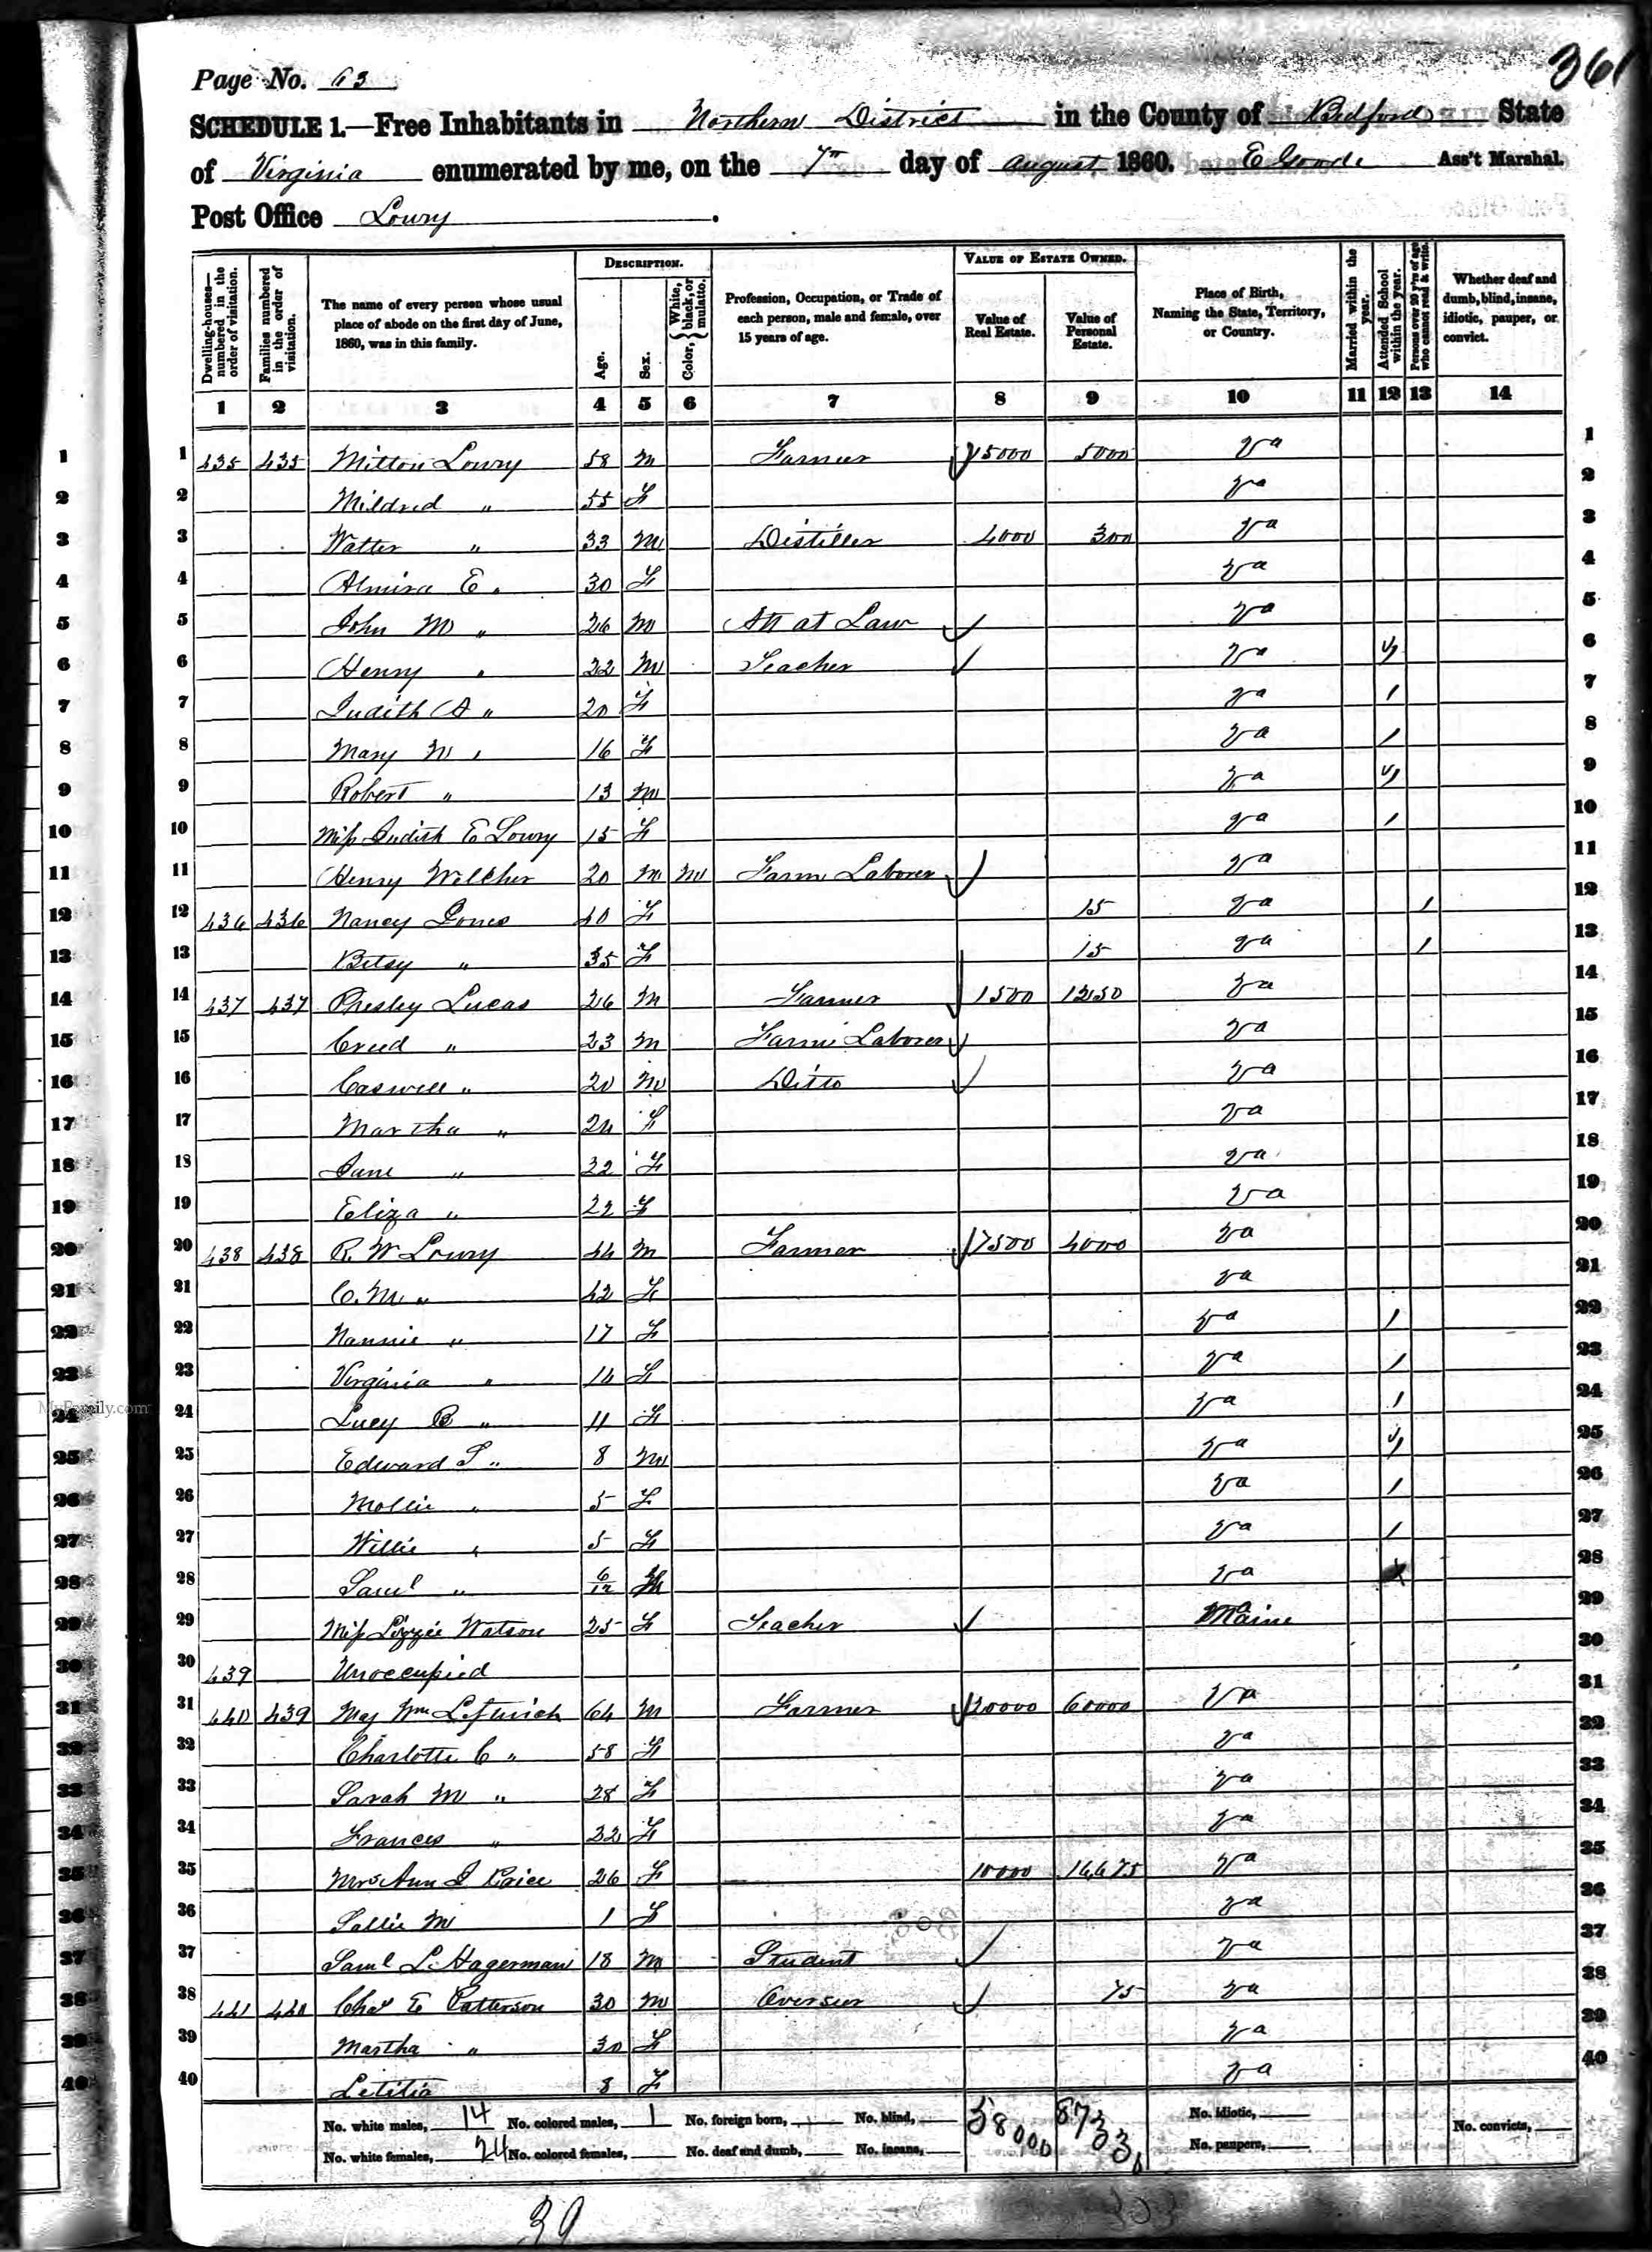 361
Page No. 63
SCHEDULE 1.—Free Inhabitants in Northern District in the County of Bedford State
of Virginia enumerated by me, on the 7th day of August 1860. E Goode Ass't Marshal.
Post Office Lowry.
Dwelling-houses—numbered in the order of visitation.
Families numbered in the order of visitation.
The name of every person whose usual place of abode on the first day of June, 1860, was in this family.
DESCRIPTION.
Age.
Sex.
Color, { White, black, or mulatto.
Profession, Occupation, or Trade of each person, male and female, over 15 years of age.
VALUE OF ESTATE OWNED.
Value of Real Estate.
Value of Personal Estate.
Place of Birth, Naming the State, Territory, or Country.
Married within the year.
Attended School within the year.
Persons over 20 y'rs of age who cannot read & write.
Whether deaf and dumb, blind, insane, idiotic, pauper, or convict.
1 2 3 4 5 6 7 8 9 10 11 12 13 14
1 435 435 Milton Lowry 58 M Farmer 15000 5000 Va 1
2 Mildred " 55 F Va 2
3 Walter " 33 M Distiller 4000 300 Va 3
4 Almira E " 30 F Va 4
5 John M " 26 M Att at Law Va 5
6 Henry " 22 M Teacher Va 6
7 Judith A " 20 F Va / 7
8 Mary M " 16 F Va / 8
9 Robert " 13 M Va 9
10 Miss Judith E Lowry 15 F Va / 10
11 Henry Welcher 20 M M Farm Laborer Va 11
12 436 436 Nancy Jones 40 F 15 Va / 12
13 Betsy " 35 F 15 Va / 13
14 437 437 Presley Lucas 26 M Farmer 1500 1250 Va 14
15 Creed " 23 M Farm Laborer Va 15
16 Caswell " 20 M Ditto Va 16
17 Martha " 24 F Va 17
18 Jane " 22 F Va 18
19 Eliza " 22 F Va 19
20 438 438 R. W Lowry 44 M Farmer 7500 4000 Va 20
21 C. M " 42 F Va 21
22 Nannie " 17 F Va / 22
23 Virginia " 14 F Va / 23
24 Lucy B " 11 F Va / 24
25 Edward S " 8 M Va 25
26 Mollie " 5 F Va / 26
27 Willie " 5 F Va / 27
28 Saml " 6/12 M Va 28
29 Miss Lizzie Watson 25 F Teacher Maine 29
30 439 Unoccupied 30
31 440 439 Maj Wm Leftwich 64 M Farmer 20000 60000 Va 31
32 Charlotte C " 58 F Va 32
33 Sarah M " 28 F Va 33
34 Frances " 32 F Va 34
35 Mrs Ann J Price 26 F 10000 16,675 Va 35
36 Sallie M 1 F Va 36
37 Saml L. Hagerman 18 M Student Va 37
38 441 440 Chas E Patterson 30 M Overseer 75 Va 38
39 Martha " 30 F Va 39
40 Letitia 8 F Va 40
No. white males, 14 No. colored males, 1 No. foreign born, No. blind, 58000 87330 No. idiotic,
No. white females, 24 No. colored females, No. deaf and dumb, No. insane, No. paupers, No. convicts,
39
MyFamily.com